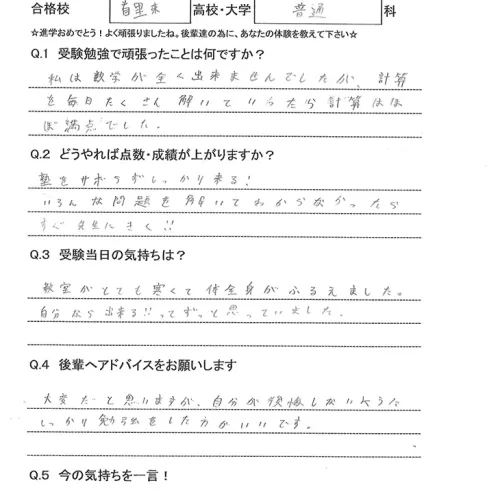 合格校 首里東 高校・大学 普通 科
☆進学おめでとう！よく頑張りましたね。後輩達の為に、あなたの体験を教えて下さい☆
Q.1 受験勉強で頑張ったことは何ですか？
私は数学が全く出来ませんでしたが、計算
を毎日たくさん解いていらたら計算はほ
ぼ満点でした。
Q.2 どうやれば点数・成績が上がりますか？
塾をサボらずしっかり来る！
いろんな問題を解いてわからなかったら
すぐ先生にきく!!
Q.3 受験当日の気持ちは？
教室がとても寒くて体全身がふるえました。
自分なら出来る!!ってずっと思っていました。
Q.4 後輩へアドバイスをお願いします
大変だと思いますが、自分が後悔しないようた
しっかり勉強をした方がいいです。
Q.5 今の気持ちを一言！